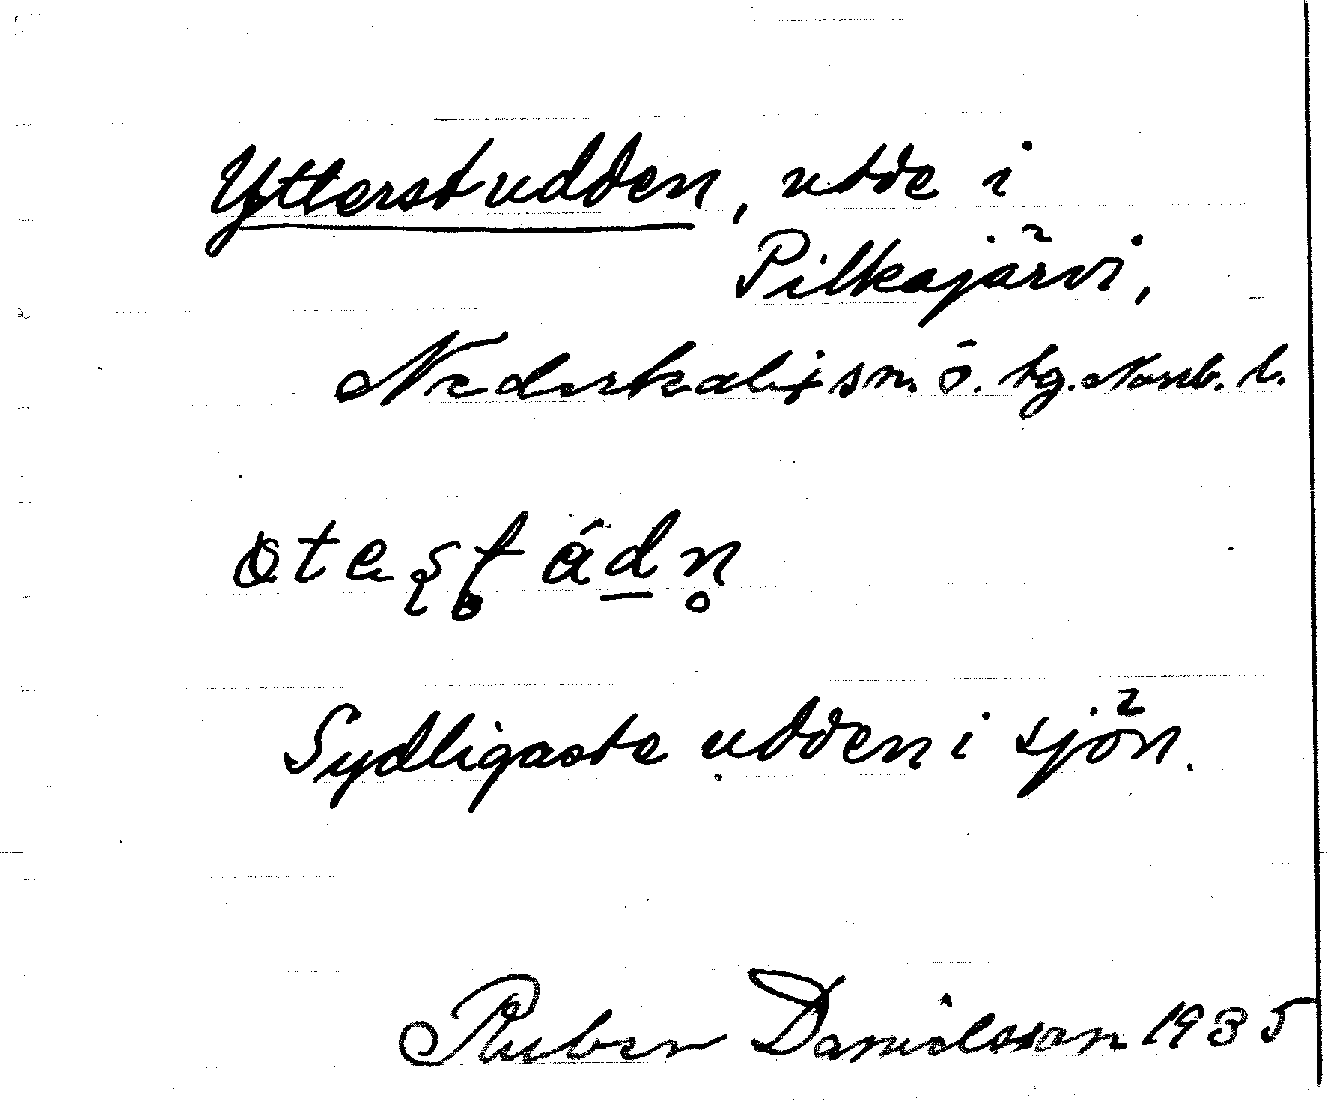 Ytterstudden, udde i
Pilkajärvi,
Nederkalix sn. ö. tg. Norrb. l.
Sydligaste udden i sjön.
Ruben Danielsson 1935